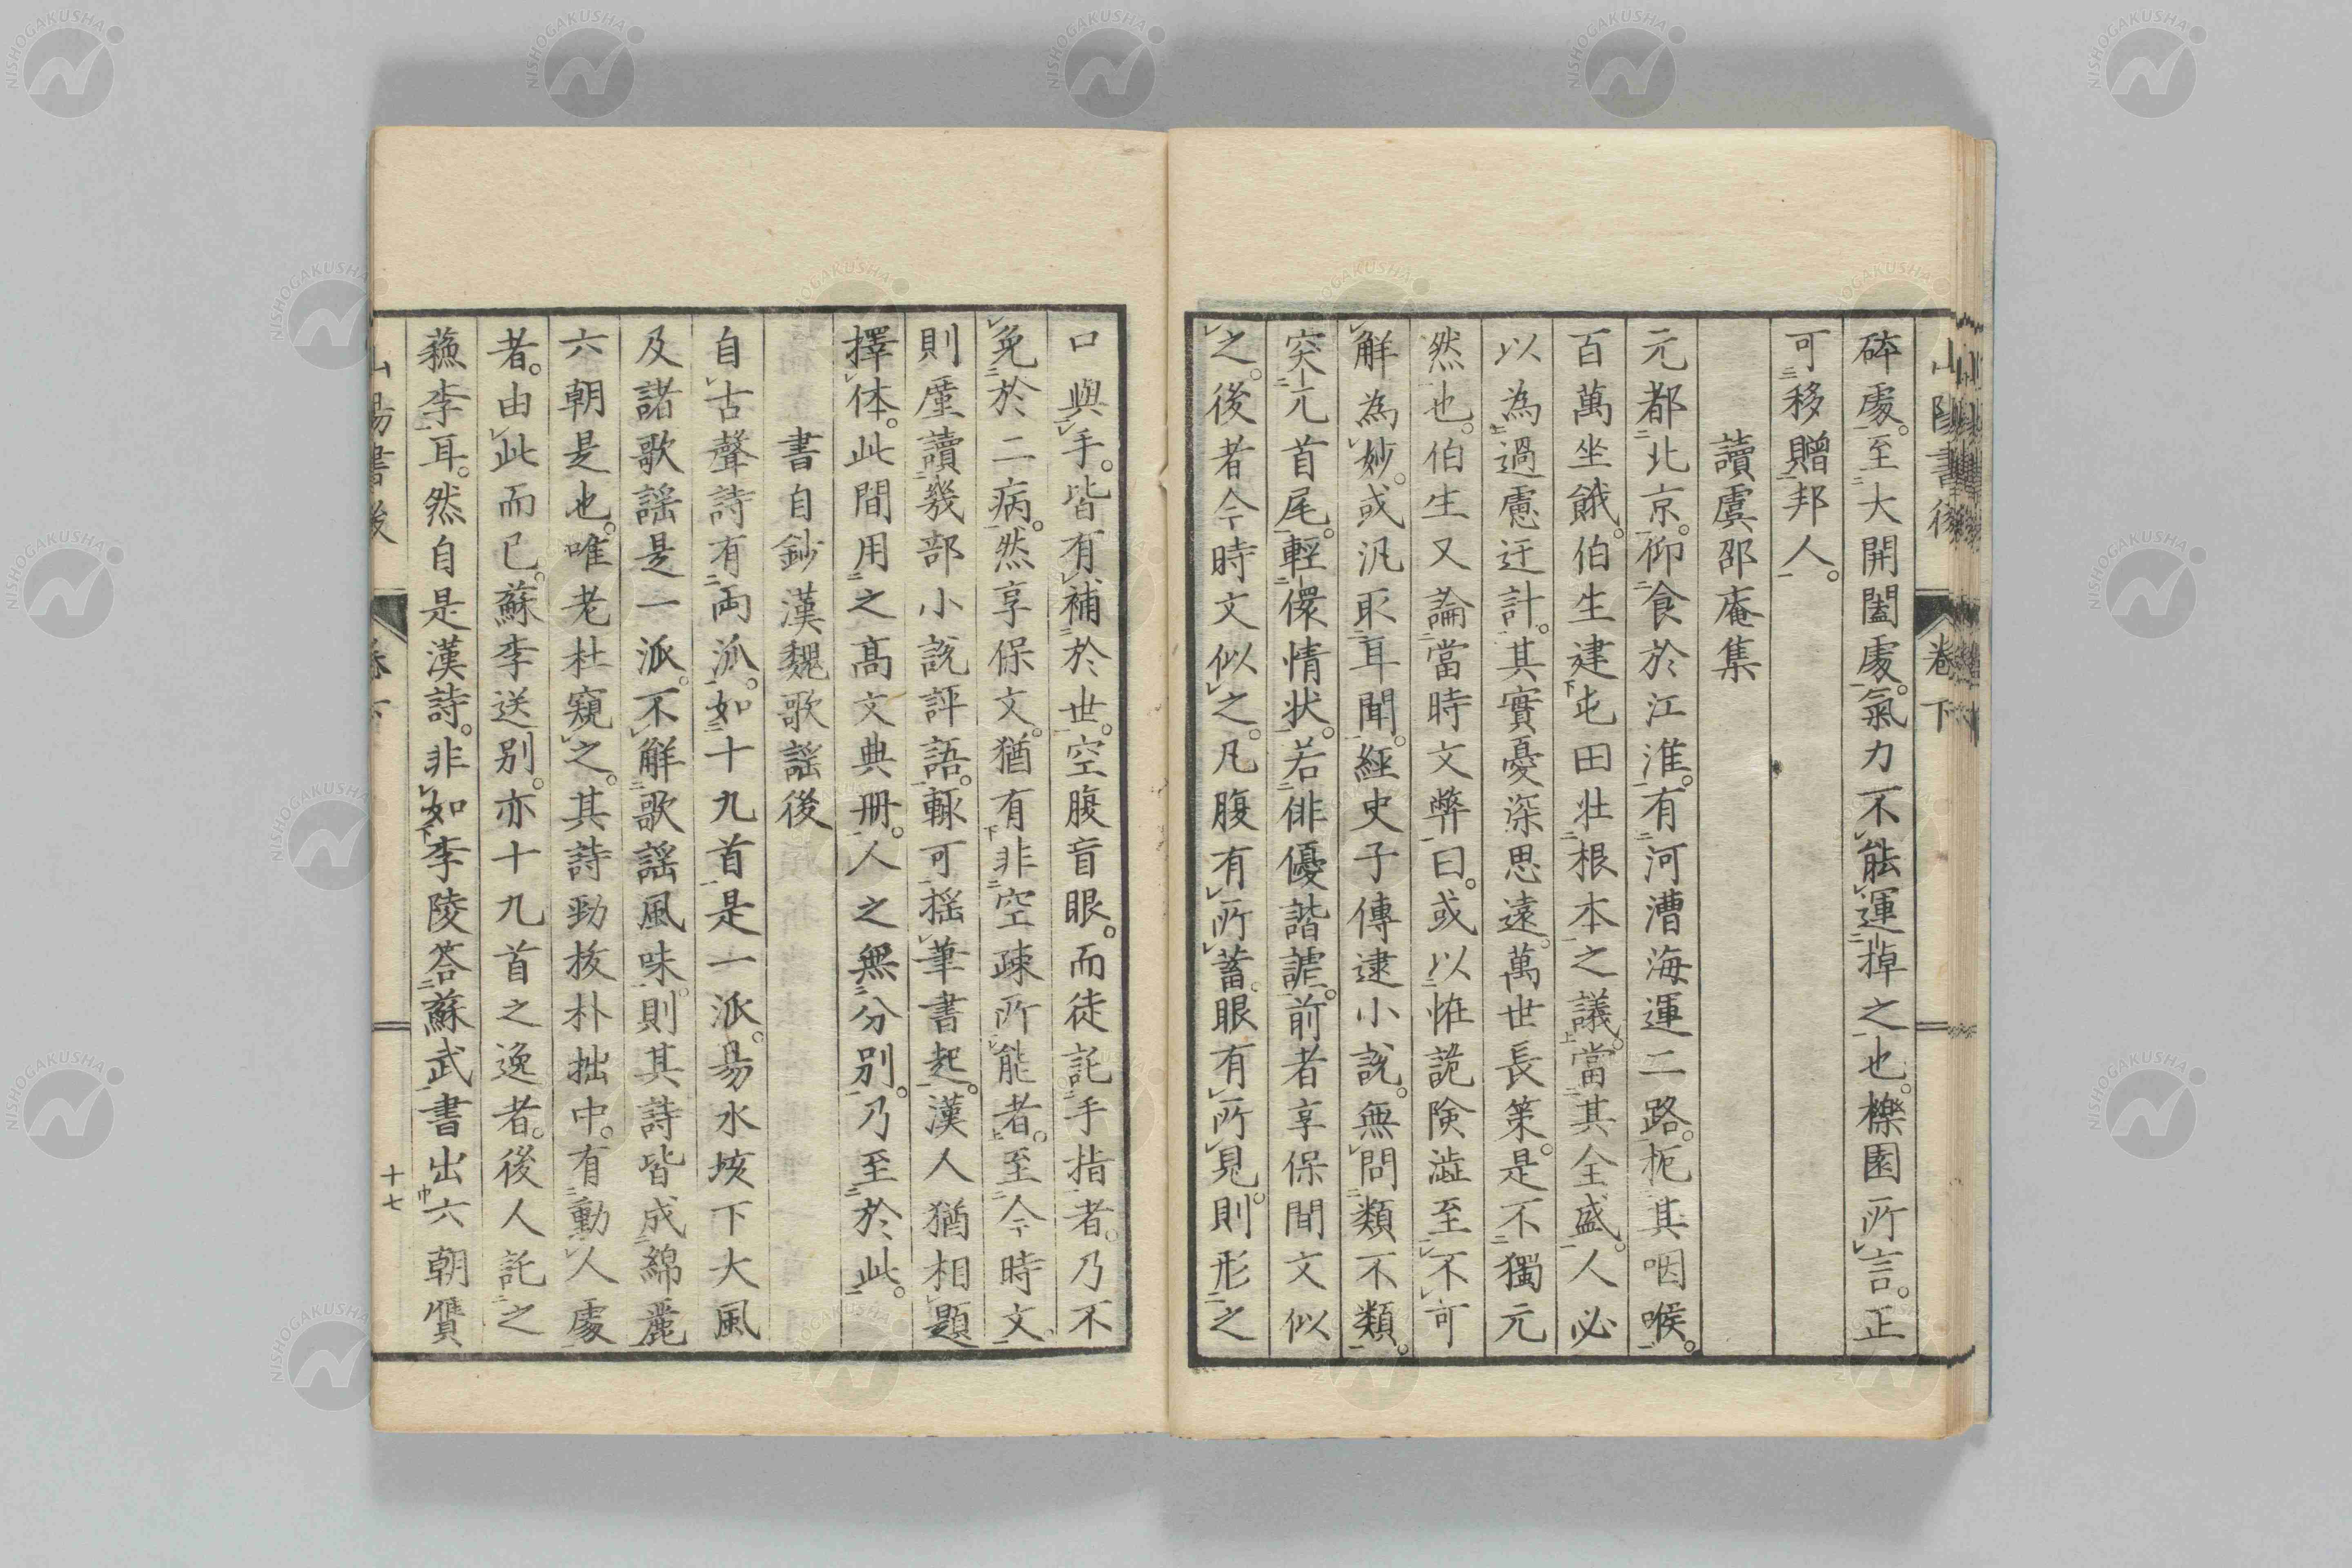 山陽書後 卷下
砕處。至大開闔處。氣力不能運掉之也。櫟園所言。正
可移贈邦人。
讀虞邵庵集
元都北京。仰食於江淮。有河漕海運二路。扼其咽喉。
百萬坐餓。伯生建屯田壯根本之議。當其全盛。人必
以為過慮迂計。其實憂深思遠。萬世長策。是不獨元
然也。伯生又論當時文弊曰。或以恠詭険澁至不可
解為妙。或汎取耳聞。經史子傳逮小說。無問類不類。
突元首尾。輕儇情状。若俳優諧謔。前者享保間文似
之。後者今時文似之。凡腹有所蓄。眼有所見。則形之
口與手。皆有補於世。空腹盲眼。而徒託手指者。乃不
免於二病。然享保文。猶有非空疎所能者。至今時文。
則廑讀幾部小說評語。輒可揺筆書起。漢人猶相題
擇体。此間用之高文典冊。人之無分別。乃至於此。
書自鈔漢魏歌謡後
自古聲詩有両派。如十九首是一派。易水垓下大風
及諸歌謡是一派。不解歌謡風味。則其詩皆成綿麗
六朝是也。唯老杜窺之。其詩勁拔朴拙中。有動人處
者。由此而已。蘇李送別。亦十九首之逸者。後人託之
蘓李耳。然自是漢詩。非如李陵答蘇武書出六朝贋
山陽書後 十七
NISHOGAKUSHA